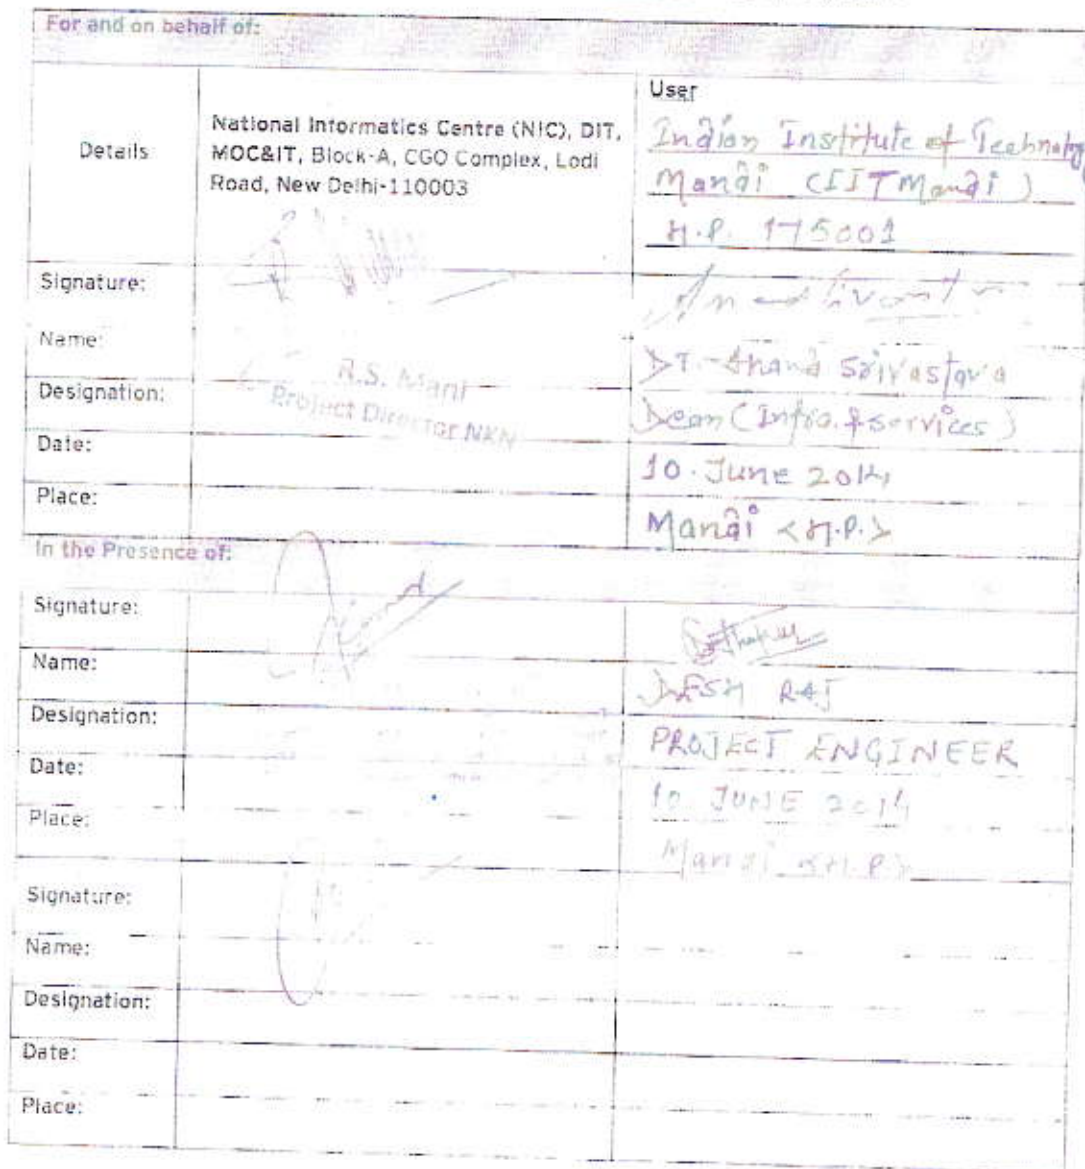 For and on behalf of:
Details
National Informatics Centre (NIC), DIT,
MOC&IT, Block-A, CGO Complex, Lodi
Road, New Delhi-110003
User
Indian Institute of Technology
Mandi (IIT Mandi)
H.P. 175001
Signature:
Name:
R.S. Mani
Dr. Anand Srivastava
Designation:
Project Director NKN
Dean (Infra. & services)
Date:
10. June 2014
Place:
Mandi <H.P.>
In the Presence of:
Signature:
Name:
DESH RAJ
Designation:
PROJECT ENGINEER
Date:
10. JUNE 2014
Place:
Mandi <H.P.>
Signature:
Name:
Designation:
Date:
Place: